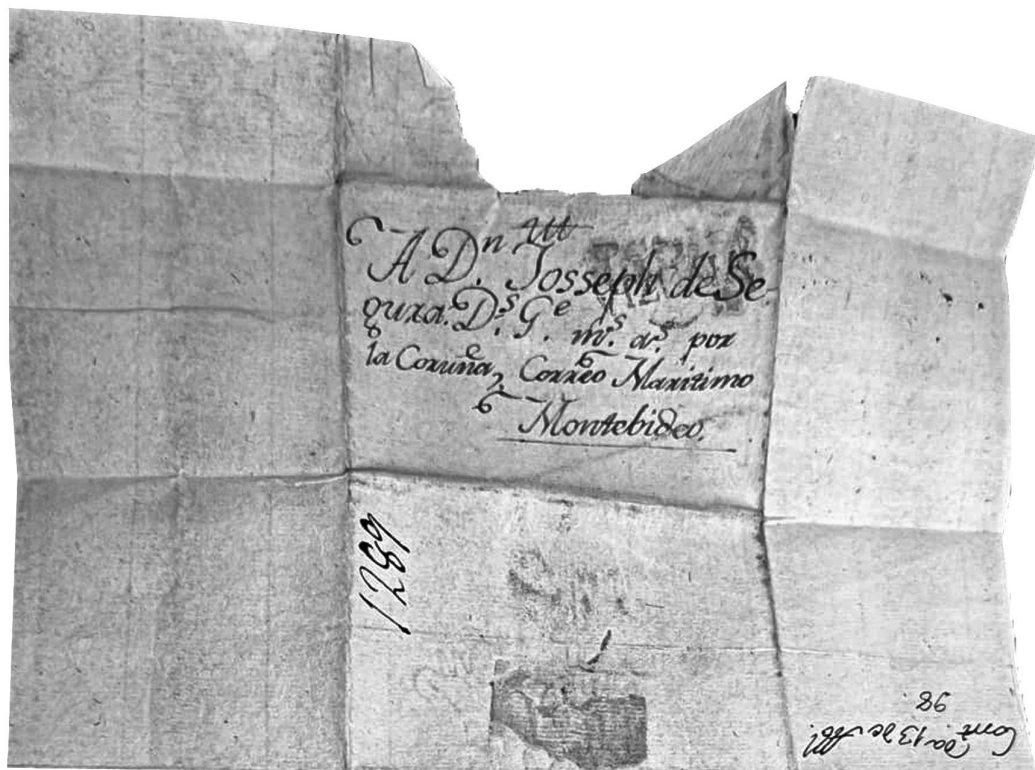 A Dn. Josseph de Se-
gura. Ds. Ge. ms. as. por
la Coruña, Correo Maritimo
Montebideo.
1289
Contda. 13 de Abl.
98.